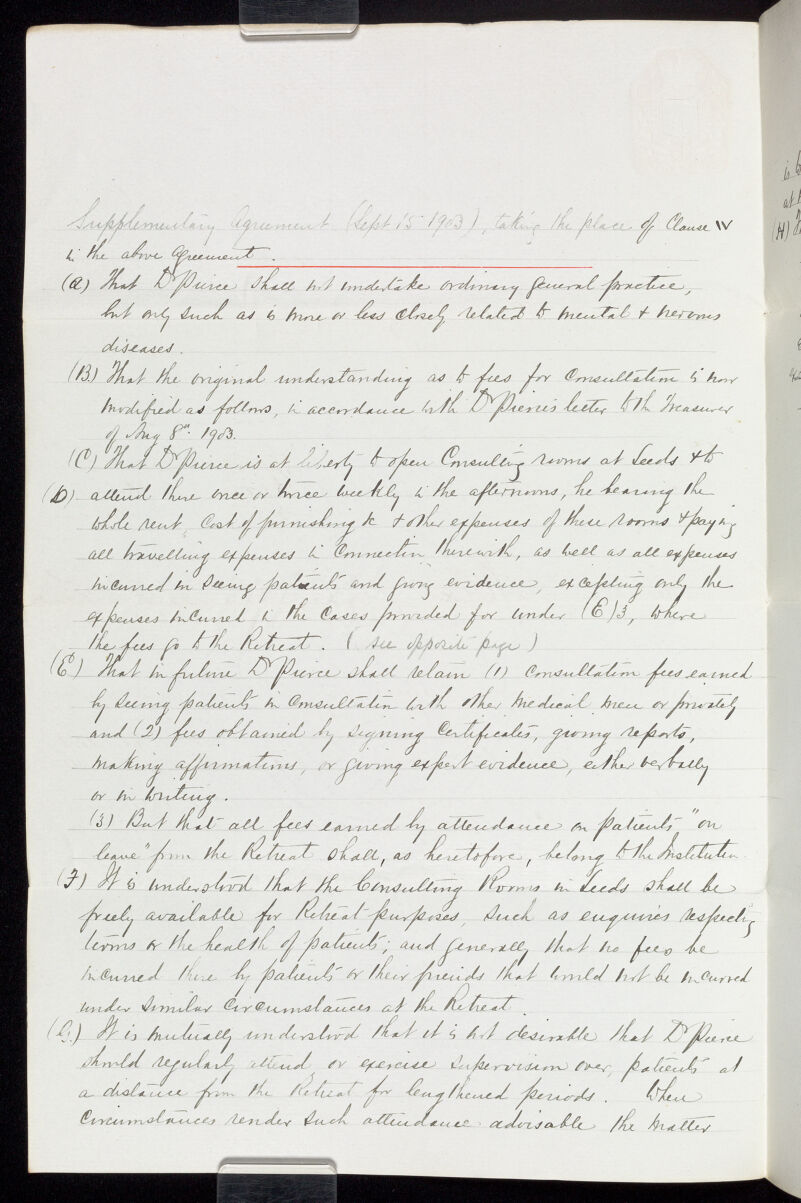 Supplementary Agreement (Sept 15 1903), taking the place of Clause IV
in the above Agreement.
(A) That Dr Pierce shall not undertake ordinary general practice,
but only such as is more or less closely related to mental & nervous
diseases.
(B.) That the original understanding as to fees for Consultation is now
modified as follows, in accordance with Dr Pierce's letter to the Treasurer
of Aug 8th 1903.
(C) That Dr Pierce is at liberty to open Consulting rooms at Leeds & to
(D) attend there once or twice weekly in the afternoons, he bearing the
whole rent, Cost of furnishing &c & other expenses of these rooms & paying
all travelling expenses in Connection therewith, as well as all expenses
incurred in seeing patients and giving evidence, excepting only the
expenses incurred in the Cases provided for under (E) 3, where
the fees go to the Retreat. (see opposite page)
(E) That in future Dr Pierce shall retain (1) consultation fees earned
by seeing patients in Consultation with other medical men or privately
and (2) fees obtained by signing Certificates, giving reports,
making affirmations, or giving expert evidence, either verbally
or in writing.
(3) But that all fees earned by attendance on patients "on
leave" from the Retreat shall, as heretofore, belong to the Institution
(F) It is understood that the Consulting Rooms in Leeds shall be
freely available for Retreat purposes, such as enquiries respecting
terms or the health of patients; and generally that no fees be
incurred there by patients or their friends that would not be incurred
under similar Circumstances at the Retreat.
(G.) It is mutually understood that it is not desirable that Dr Pierce
should regularly attend, or exercise supervision over, patients at
a distance from the Retreat for lengthened periods. When
Circumstances render such attendance advisable the matter
(H)